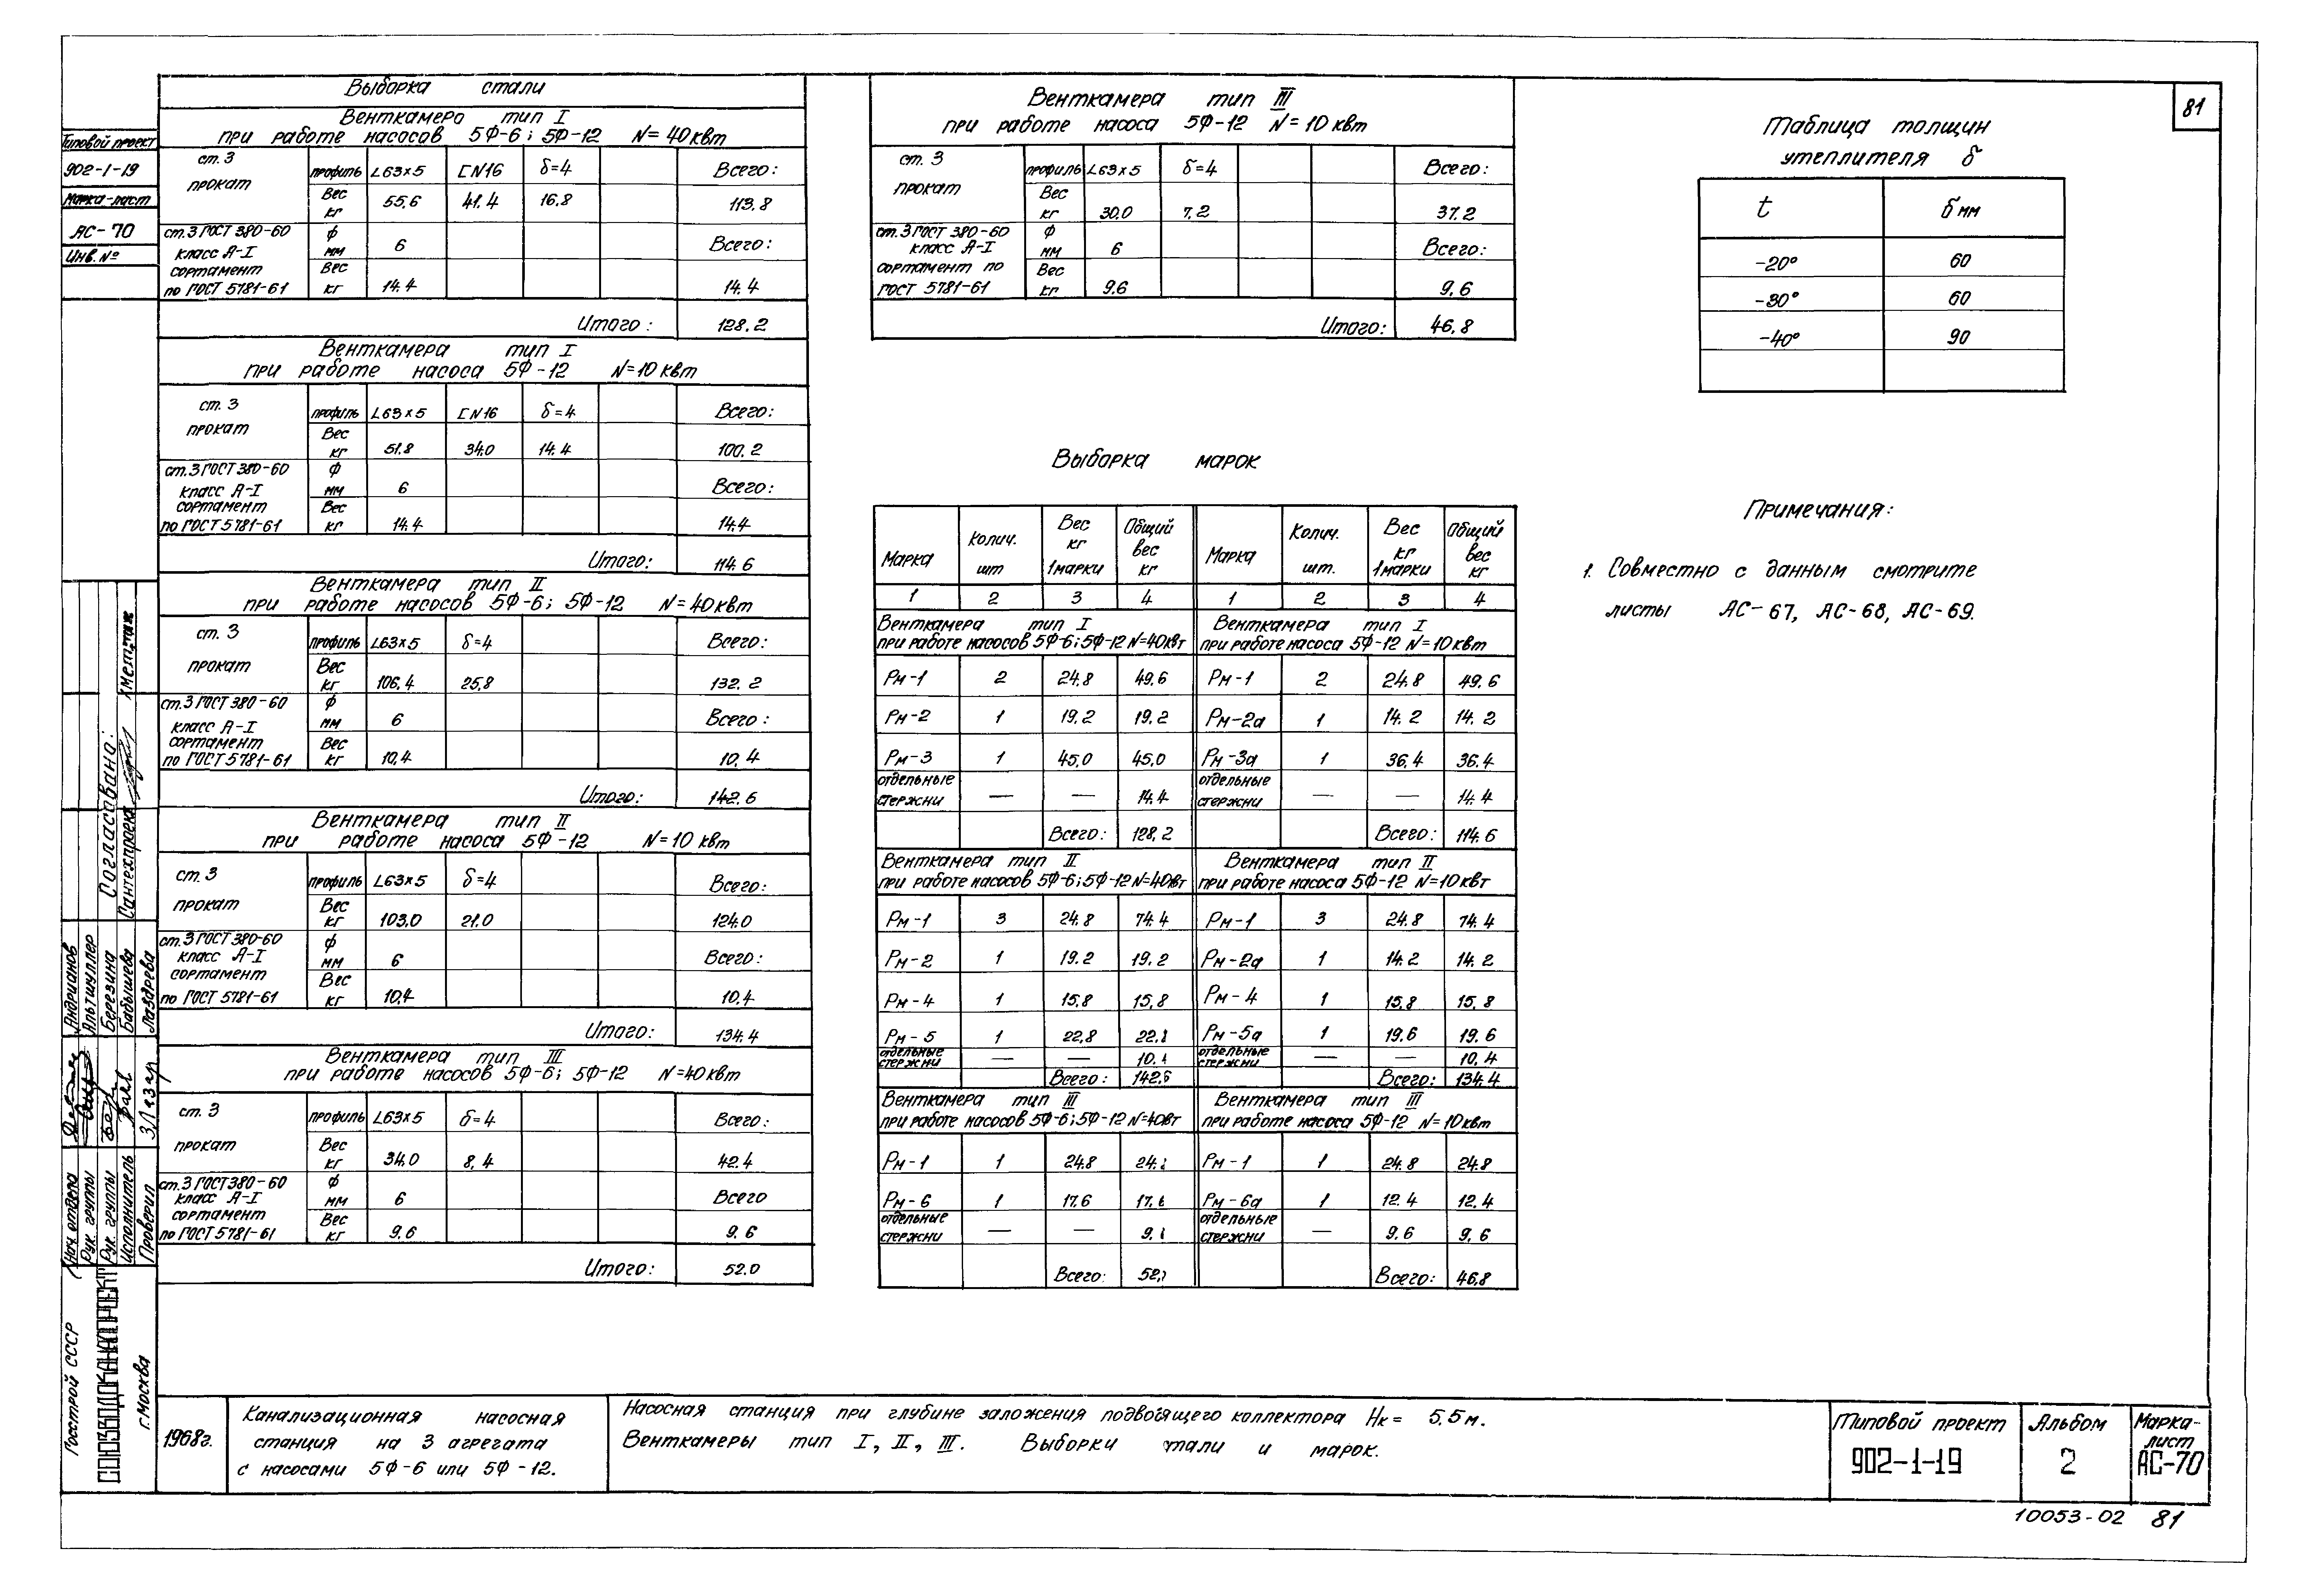 81
Типовой проект
902-1-19
Марка-лист
АС-70
Инв. №
Выборка стали
Венткамера тип I
при работе насосов 5Ф-6; 5Ф-12 N=40квт
ст. 3 прокат профиль L63×5 [N16 δ=4 Всего:
Вес кг 55,6 41.4 16.8 113,8
ст.3 ГОСТ 380-60 класс А-I ф мм 6 Всего:
сортамент по ГОСТ 5781-61 Вес кг 14.4 14.4
Итого: 128.2
Венткамера тип I
при работе насоса 5Ф-12 N=10 квт
ст. 3 прокат профиль L63×5 [N16 δ=4 Всего:
Вес кг 51,8 34,0 14.4 100.2
ст.3 ГОСТ 380-60 класс А-I ф мм 6 Всего:
сортамент по ГОСТ 5781-61 Вес кг 14.4 14.4
Итого: 114.6
Венткамера тип II
при работе насосов 5Ф-6; 5Ф-12 N=40квт
ст. 3 прокат профиль L63×5 δ=4 Всего:
Вес кг 106,4 25,8 132.2
ст.3 ГОСТ 380-60 класс А-I ф мм 6 Всего:
сортамент по ГОСТ 5781-61 Вес кг 10,4 10.4
Итого: 142.6
Венткамера тип II
при работе насоса 5Ф-12 N=10 квт
ст. 3 прокат профиль L63×5 δ=4 Всего:
Вес кг 103,0 21.0 124.0
ст.3 ГОСТ 380-60 класс А-I ф мм 6 Всего:
сортамент по ГОСТ 5781-61 Вес кг 10,4 10.4
Итого: 134.4
Венткамера тип III
при работе насосов 5Ф-6; 5Ф-12 N=40квт
ст. 3 прокат профиль L63×5 δ=4 Всего:
Вес кг 34,0 8,4 42.4
ст.3 ГОСТ 380-60 класс А-I ф мм 6 Всего
сортамент по ГОСТ 5781-61 Вес кг 9,6 9.6
Итого: 52.0
Венткамера тип III
при работе насоса 5Ф-12 N=10 квт
ст. 3 прокат профиль L63×5 δ=4 Всего:
Вес кг 30,0 7,2 37.2
ст.3 ГОСТ 380-60 класс А-I ф мм 6 Всего:
сортамент по ГОСТ 5781-61 Вес кг 9.6 9,6
Итого: 46,8
Выборка марок
Марка Колич. шт Вес кг 1марки Общий вес кг Марка Колич. шт. Вес кг 1марки Общий вес кг
1 2 3 4 1 2 3 4
Венткамера тип I Венткамера тип I
при работе насосов 5Ф-6; 5Ф-12 N=40квт при работе насоса 5Ф-12 N=10квт
Рм-1 2 24,8 49,6 Рм-1 2 24.8 49.6
Рм-2 1 19,2 19.2 Рм-2а 1 14.2 14.2
Рм-3 1 45,0 45,0 Рм-3а 1 36.4 36.4
отдельные стержни — — 14.4 отдельные стержни — — 14.4
Всего: 128,2 Всего: 114.6
Венткамера тип II Венткамера тип II
при работе насосов 5Ф-6; 5Ф-12 N=40квт при работе насоса 5Ф-12 N=10квт
Рм-1 3 24.8 74.4 Рм-1 3 24.8 74.4
Рм-2 1 19.2 19.2 Рм-2а 1 14.2 14.2
Рм-4 1 15,8 15,8 Рм-4 1 15,8 15,8
Рм-5 1 22,8 Рм-5а 1 19.6 19.6
отдельные стержни — — отдельные стержни — — 10.4
Всего: 142.6 Всего: 134.4
Венткамера тип III Венткамера тип III
при работе насосов 5Ф-6; 5Ф-12 N=40вт при работе насоса 5Ф-12 N=10квт
Рм-1 1 24.8 Рм-1 1 24.8 24.8
Рм-6 1 17.6 Рм-6а 1 12.4 12.4
отдельные стержни — — отдельные стержни — 9.6 9,6
Всего: Всего: 46,8
Таблица толщин
утеплителя δ
t δ мм
-20° 60
-30° 60
-40° 90
Примечания:
1. Совместно с данным смотрите
листы АС-67, АС-68, АС-69.
Согласовано:
Сантехпроект
Нач. отдела Андрианов
Рук. группы Альтшуллер
Рук. группы Березина
Исполнитель Бабышева
Проверил Лазарева
Госстрой СССР
СОЮЗВОДОКАНАЛПРОЕКТ
г. Москва
1968г.
Канализационная насосная
станция на 3 агрегата
с насосами 5Ф-6 или 5Ф-12.
Насосная станция при глубине заложения подводящего коллектора Нк= 5,5м.
Венткамеры тип I, II, III. Выборки стали и марок.
Типовой проект
902-1-19
Альбом
2
Марка-лист
АС-70
10053-02 81